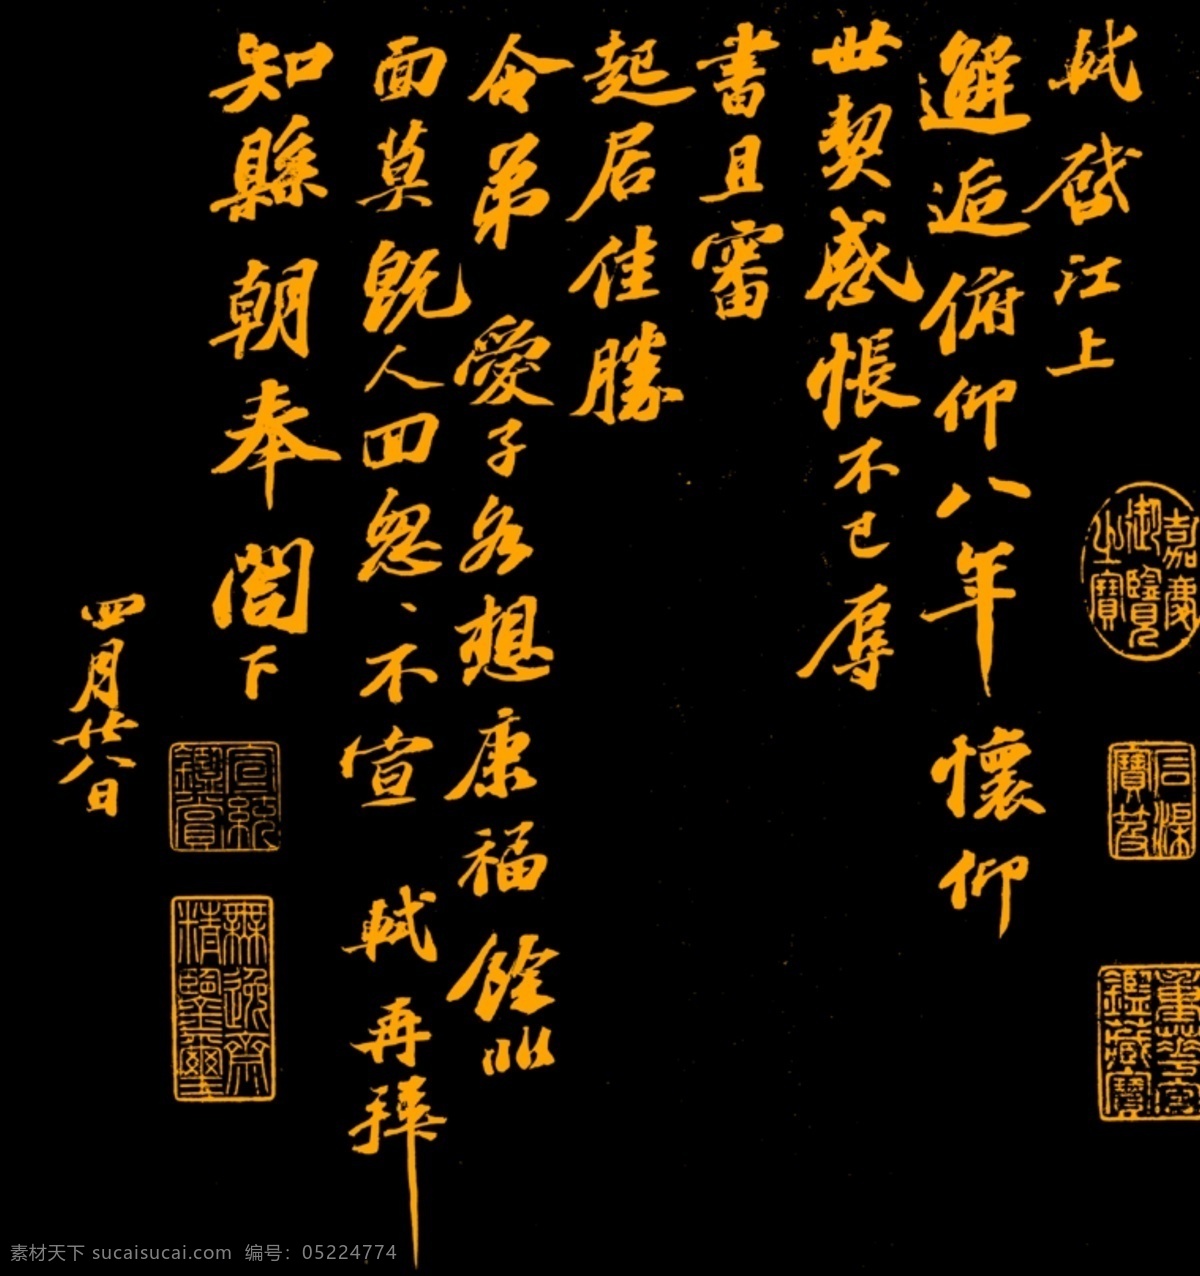 軾啓江上
邂逅俯仰八年 懷仰
世契感悵不已辱
書且審
起居佳勝
令弟 愛子各想康福餘非
面莫既人回怱、不宣 軾再拜
知縣朝奉 閤下
四月廿八日
嘉慶御覽之寶
石渠寶笈
重華宮鑑藏寶
宣統鑑賞
無逸齋精鑒璽
素材天下 sucaisucai.com 编号：05224774